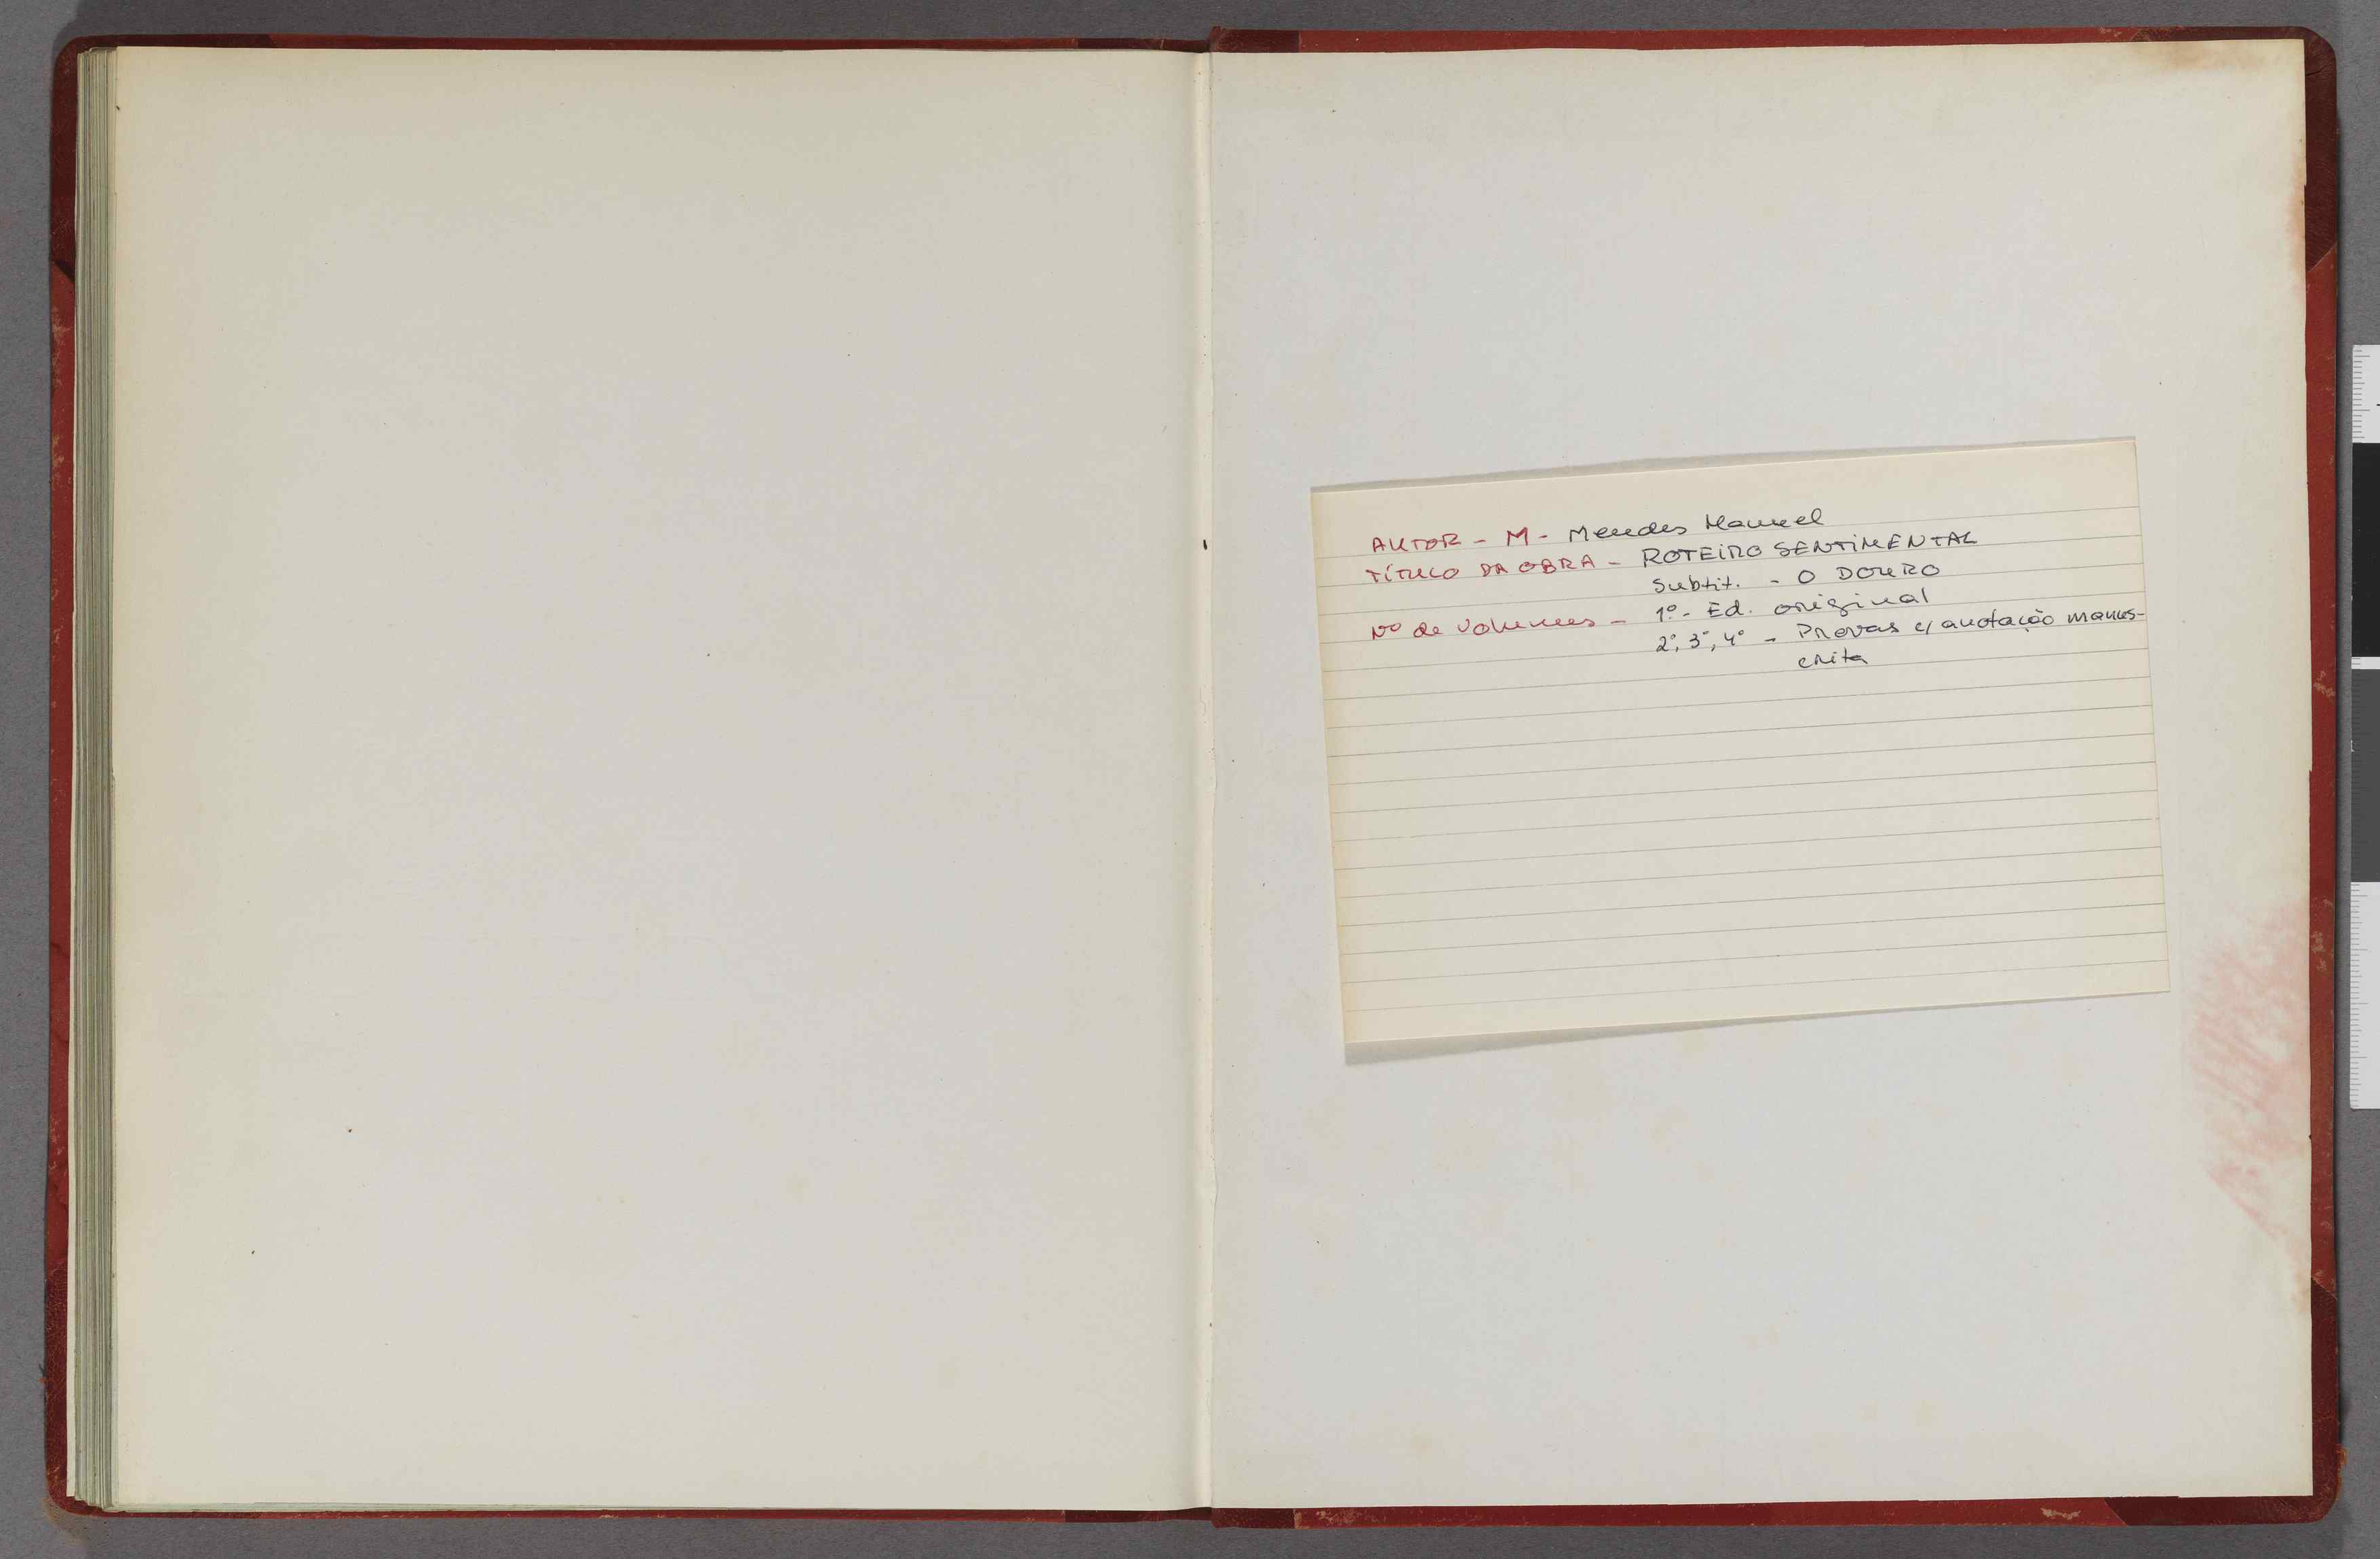 AUTOR - M - Mendes Manuel
TÍTULO DA OBRA - ROTEIRO SENTIMENTAL
Subtit. - O DOURO
Nº de Volumes - 1º - Ed. original
2º, 3º, 4º - Provas c/ anotação manus-
crita